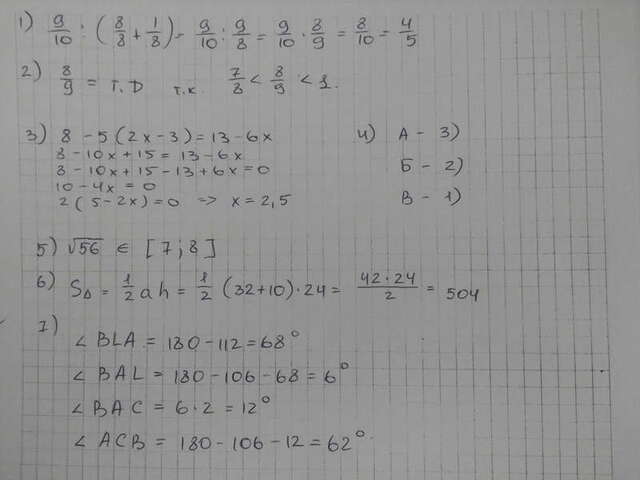 1) 9/10 : (8/8 + 1/8) = 9/10 : 9/8 = 9/10 · 8/9 = 8/10 = 4/5
2) 8/9 = т. D т.к. 7/8 < 8/9 < 1.
3) 8 - 5(2x - 3) = 13 - 6x
8 - 10x + 15 = 13 - 6x
8 - 10x + 15 - 13 + 6x = 0
10 - 4x = 0
2(5 - 2x) = 0 => x = 2,5
4) А - 3)
Б - 2)
В - 1)
5) √56 ∈ [7; 8]
6) S∆ = 1/2 a h = 1/2 (32+10) · 24 = 42·24/2 = 504
7)
∠BLA = 180 - 112 = 68°
∠BAL = 180 - 106 - 68 = 6°
∠BAC = 6·2 = 12°
∠ACB = 180 - 106 - 12 = 62°